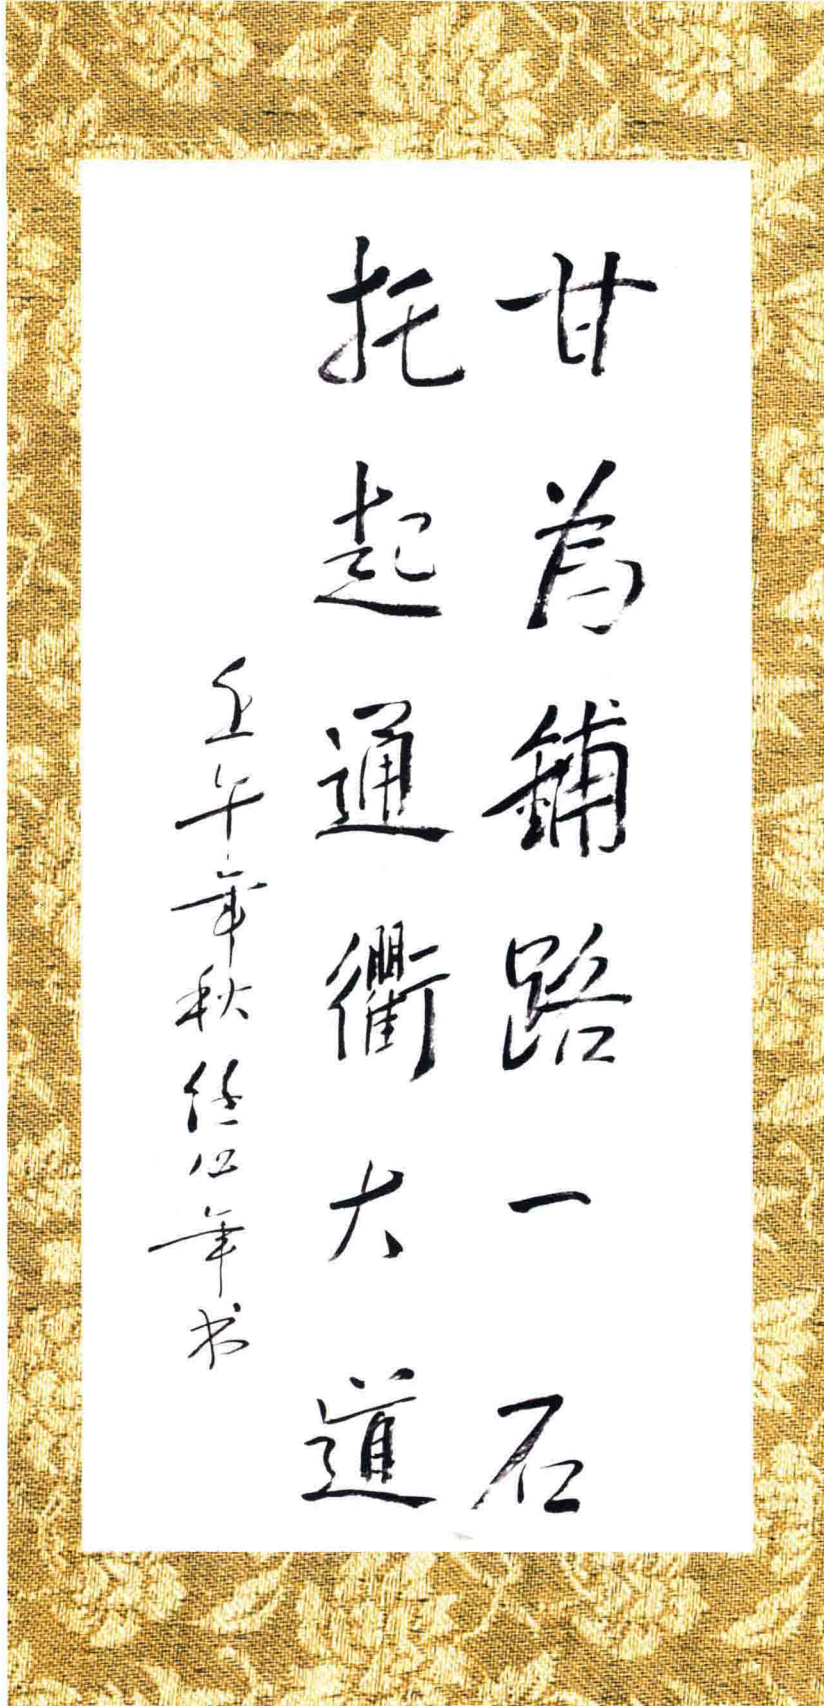 甘為鋪路一石
托起通衢大道
壬午年秋任仁年书